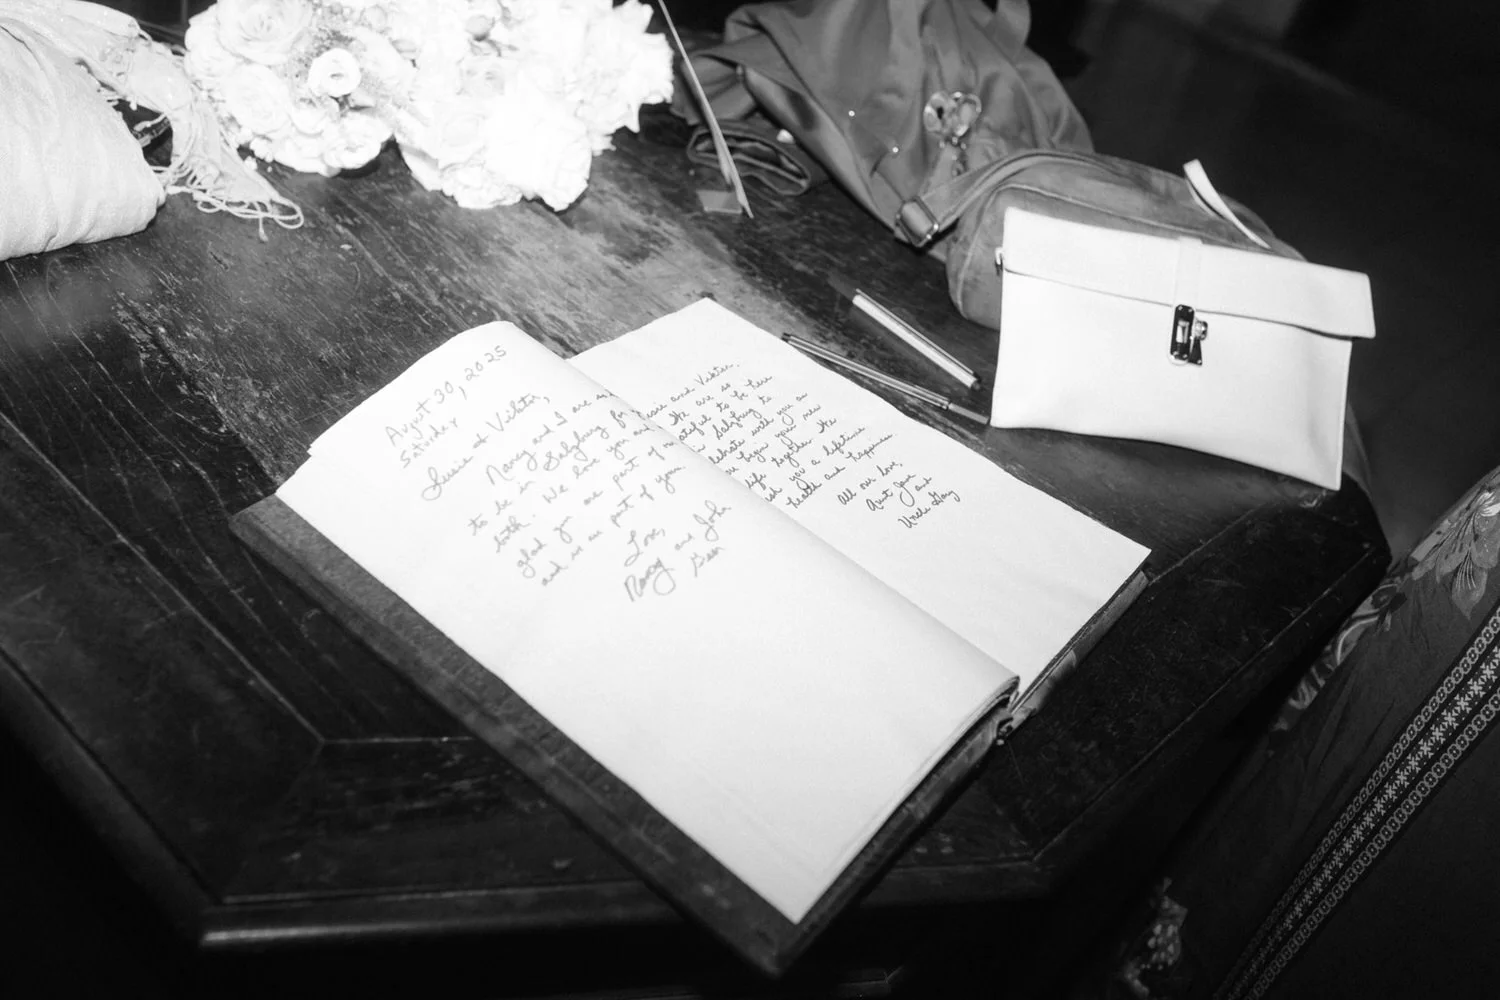 August 30, 2025
Saturday
Susie and Viktor,
Nancy and I are so
to be in Salzburg for
both. We love you and
glad you are part of
and we are part of you.
Love,
Nancy and John
Susie and Viktor,
We are so
grateful to be here
in Salzburg to
celebrate with you as
you begin your new
life together. We
wish you a lifetime
health and happiness.
All our love,
Aunt Jane
and
Uncle Gary